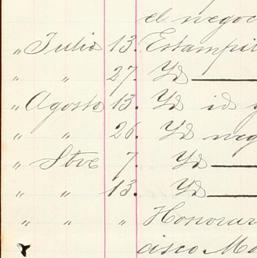 el negoc
" Julio 13. Estampil
" " 27. Yd
" Agosto 13. Yd id y
" " 26. Yd neg
" Stve 7. Yd
" " 13. Yd
" " " Honorar
cisco Ma